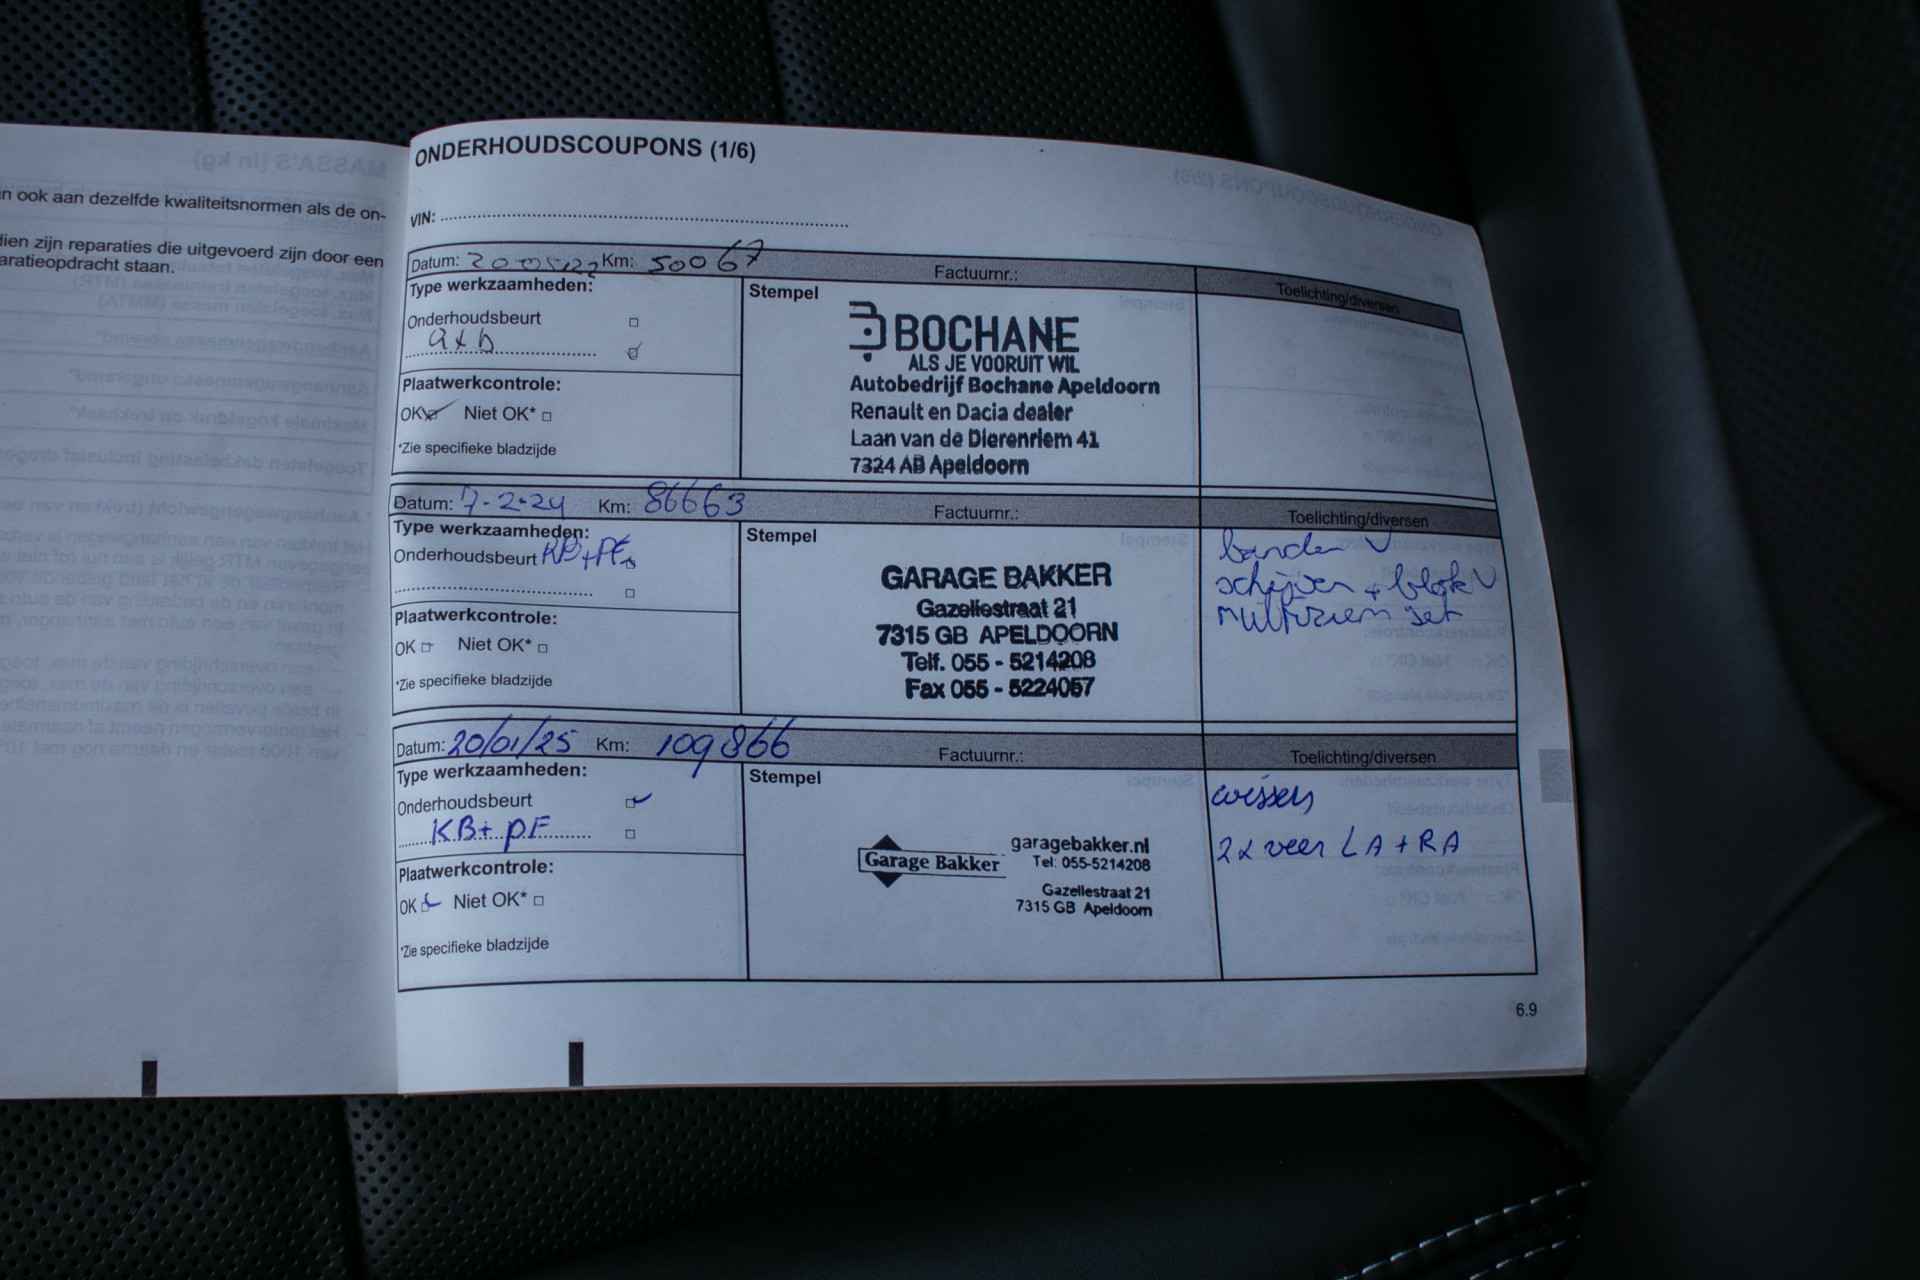 n ook aan dezelfde kwaliteitsnormen als de on-
dien zijn reparaties die uitgevoerd zijn door een
aratieopdracht staan.
ONDERHOUDSCOUPONS (1/6)
VIN:
Datum: Km: 50067 Factuurnr.: Toelichting/diversen
Type werkzaamheden:
Stempel
Onderhoudsbeurt
a+b
Plaatwerkcontrole:
OK Niet OK*
*Zie specifieke bladzijde
BOCHANE
ALS JE VOORUIT WIL
Autobedrijf Bochane Apeldoorn
Renault en Dacia dealer
Laan van de Dierenriem 41
7324 AB Apeldoorn
Datum: 7-2-24 Km: 86663 Factuurnr.: Toelichting/diversen
Type werkzaamheden:
Stempel
Onderhoudsbeurt
Plaatwerkcontrole:
OK Niet OK*
*Zie specifieke bladzijde
GARAGE BAKKER
Gazellestraat 21
7315 GB APELDOORN
Telf. 055 - 5214208
Fax 055 - 5224057
banden V
schijven + blok V
set
Datum: 20/01/25 Km: 109866 Factuurnr.: Toelichting/diversen
Type werkzaamheden:
Stempel
Onderhoudsbeurt
KB+PF
Plaatwerkcontrole:
OK Niet OK*
*Zie specifieke bladzijde
Garage Bakker
garagebakker.nl
Tel: 055-5214208
Gazellestraat 21
7315 GB Apeldoorn
wissers
2x veer LA+RA
6.9